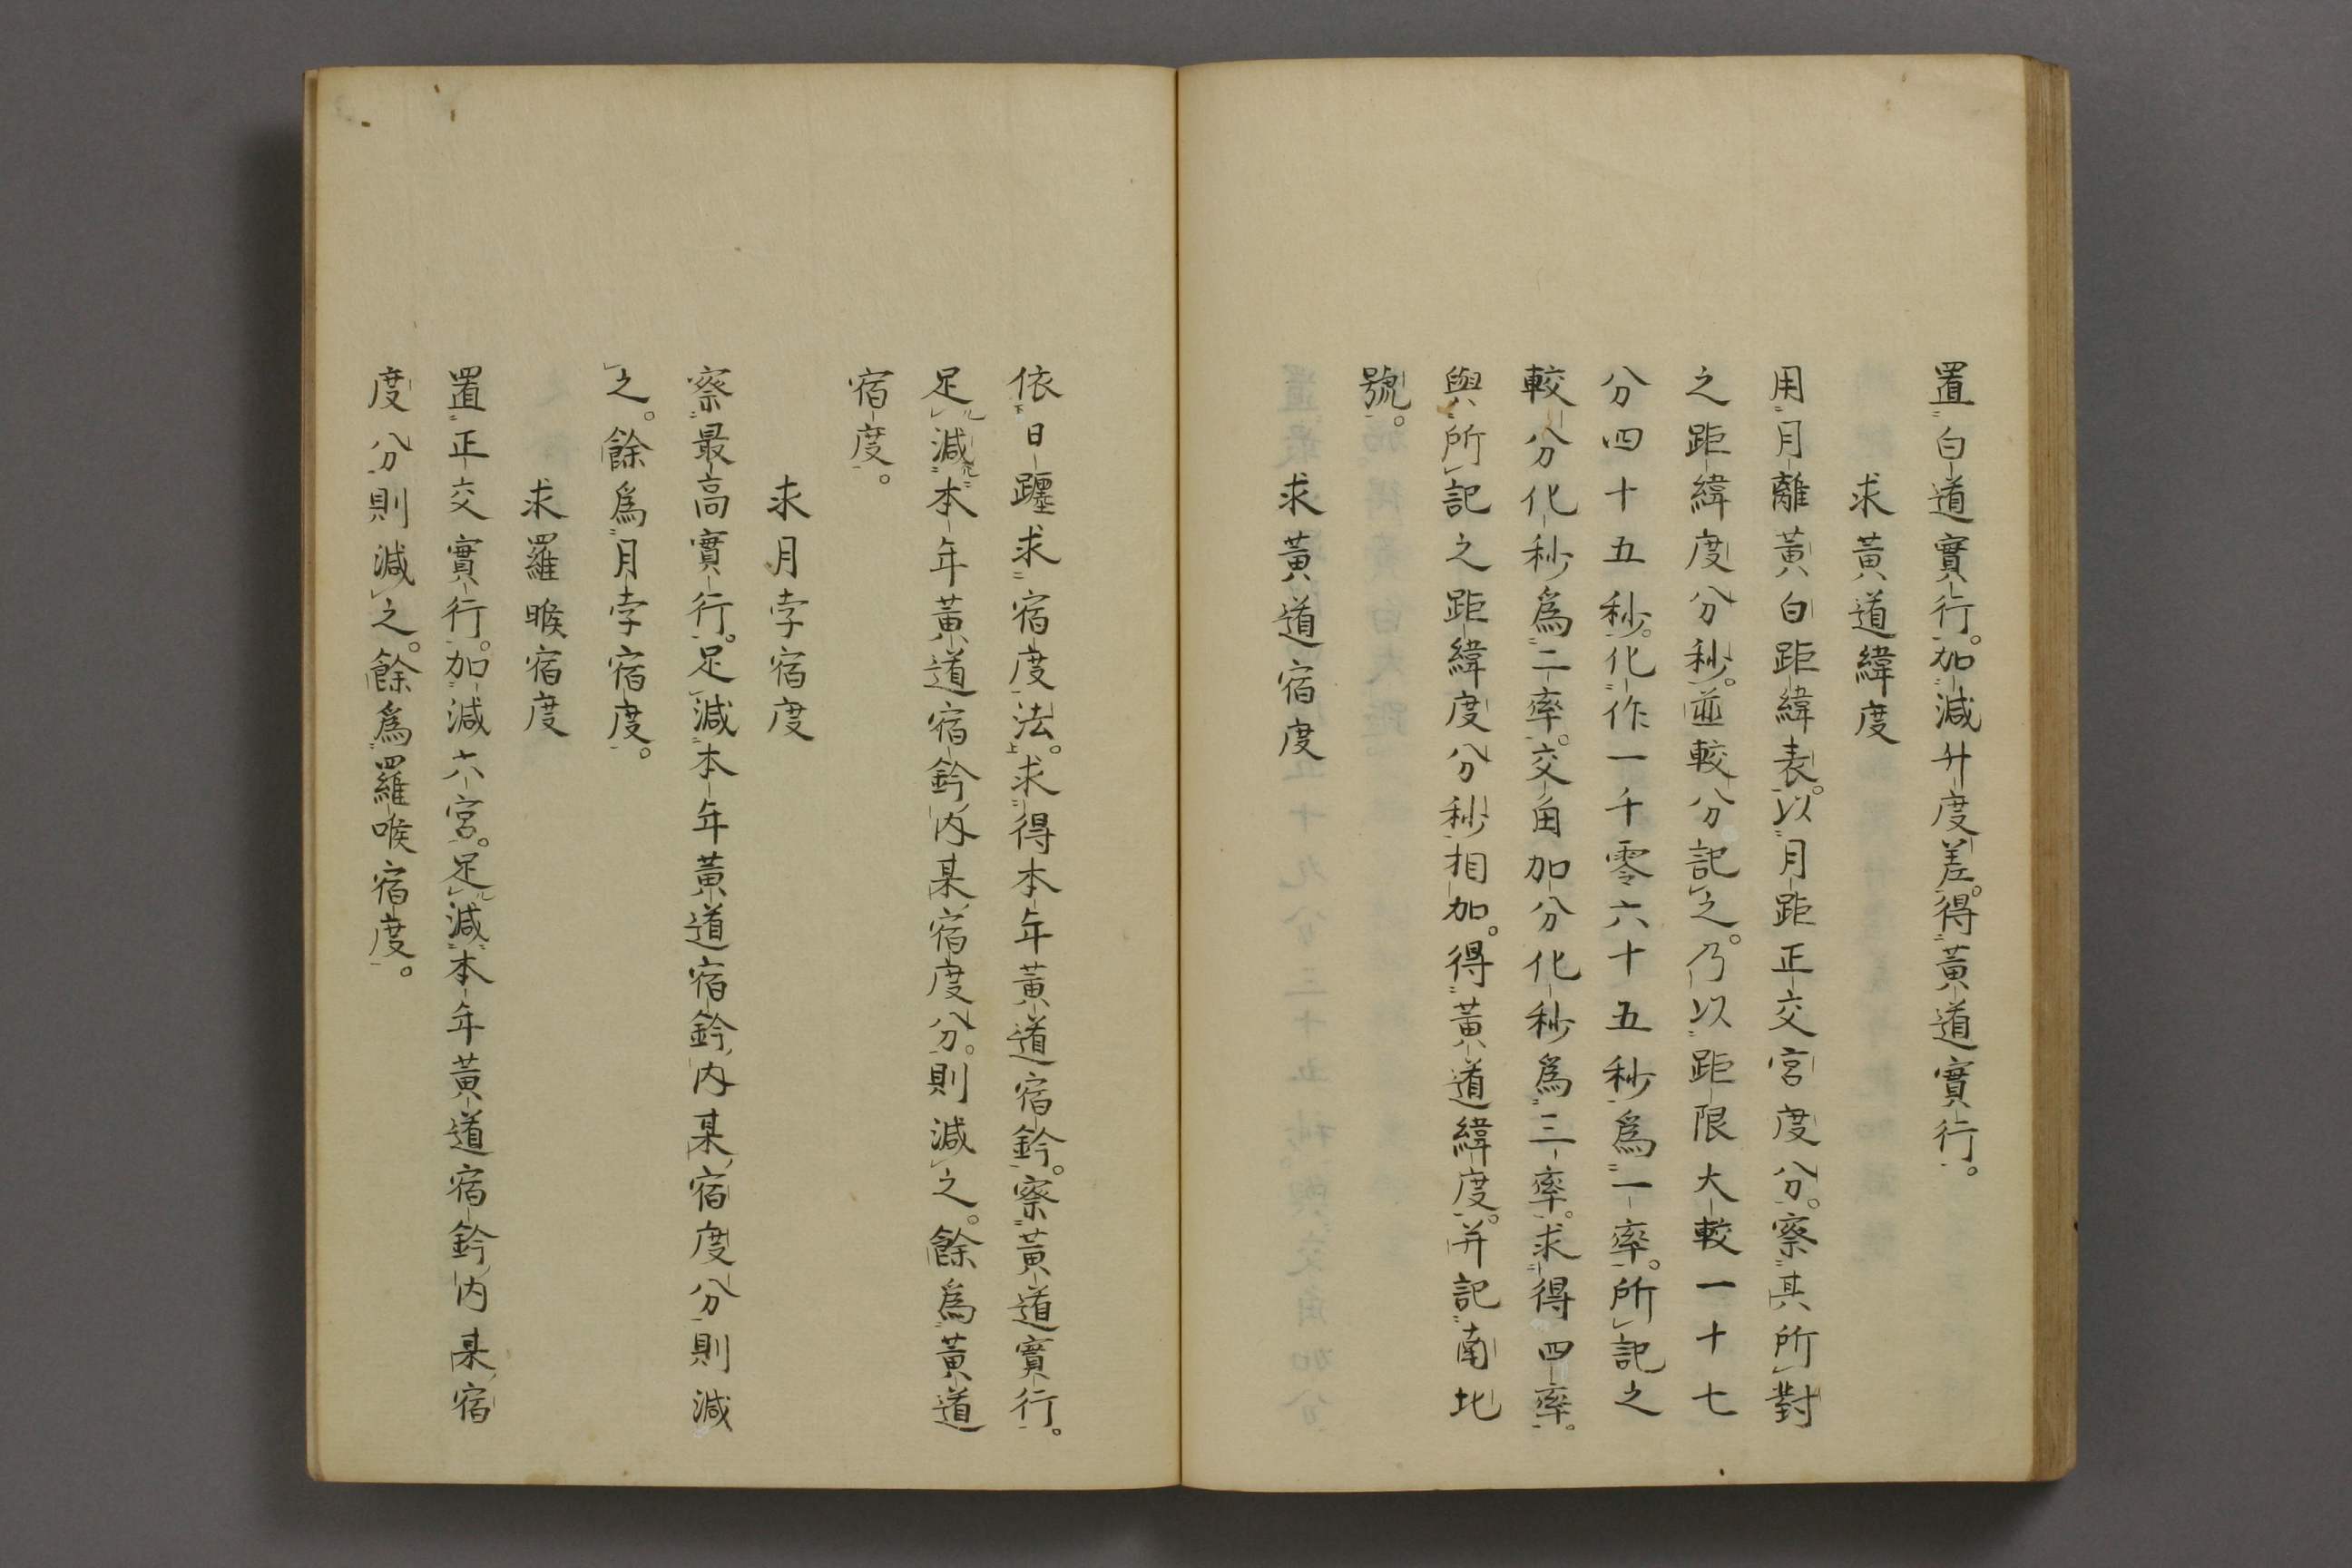 置白道實行。加減升度差。得黃道實行。
求黃道緯度
用月離黃白距緯表。以月距正交宮度分。察其所對
之距緯度分秒。並較分記之。乃以距限大較一十七
分四十五秒。化作一千零六十五秒爲一率。所記之
較分化秒爲二率。交角加分化秒爲三率。求得四率。
與所記之距緯度分秒相加。得黃道緯度。并記南北
號。
求黃道宿度
依日躔求宿度法。求得本年黃道宿鈐。察黃道實行。
足減本年黃道宿鈐內某宿度分。則減之。餘爲黃道
宿度。
求月孛宿度
察最高實行。足減本年黃道宿鈐內某宿度分則減
之。餘爲月孛宿度。
求羅睺宿度
置正交實行。加減六宮。足減本年黃道宿鈐內某宿
度分則減之。餘爲羅㬋宿度。